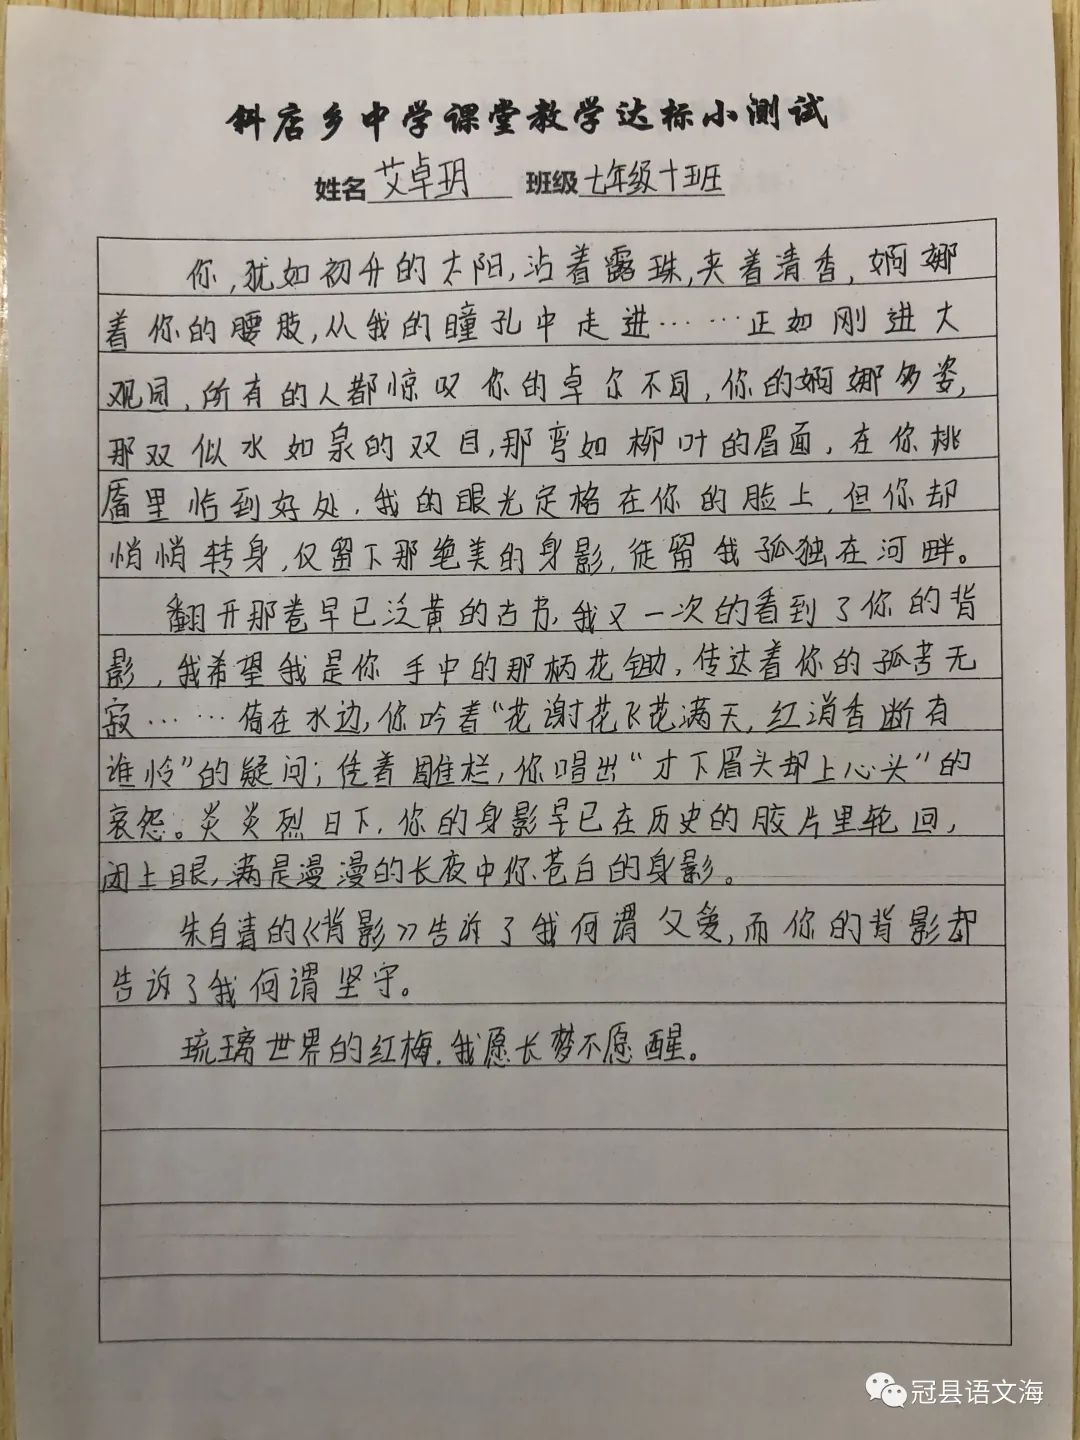 斜店乡中学课堂教学达标小测试
姓名 艾卓玥 班级 七年级十班
你,犹如初升的太阳,沾着露珠,夹着清香,婀娜
着你的腰肢,从我的瞳孔中走进……正如刚进大
观园,所有的人都惊叹你的卓尔不同,你的婀娜多姿,
那双似水如泉的双目,那弯如柳叶的眉面,在你桃
靥里恰到好处,我的眼光定格在你的脸上,但你却
悄悄转身,仅留下那绝美的身影,徒留我孤独在河畔。
翻开那卷早已泛黄的古书,我又一次的看到了你的背
影,我希望我是你手中的那柄花锄,传达着你的孤苦无
寂……倚在水边,你吟着“花谢花飞花满天,红消香断有
谁怜”的疑问;凭着雕栏,你唱出“才下眉头却上心头”的
哀怨。炎炎烈日下,你的身影早已在历史的胶片里轮回,
闭上眼,满是漫漫的长夜中你苍白的身影。
朱自清的《背影》告诉了我何谓父爱,而你的背影却
告诉了我何谓坚守。
琉璃世界的红梅,我愿长梦不愿醒。
冠县语文海